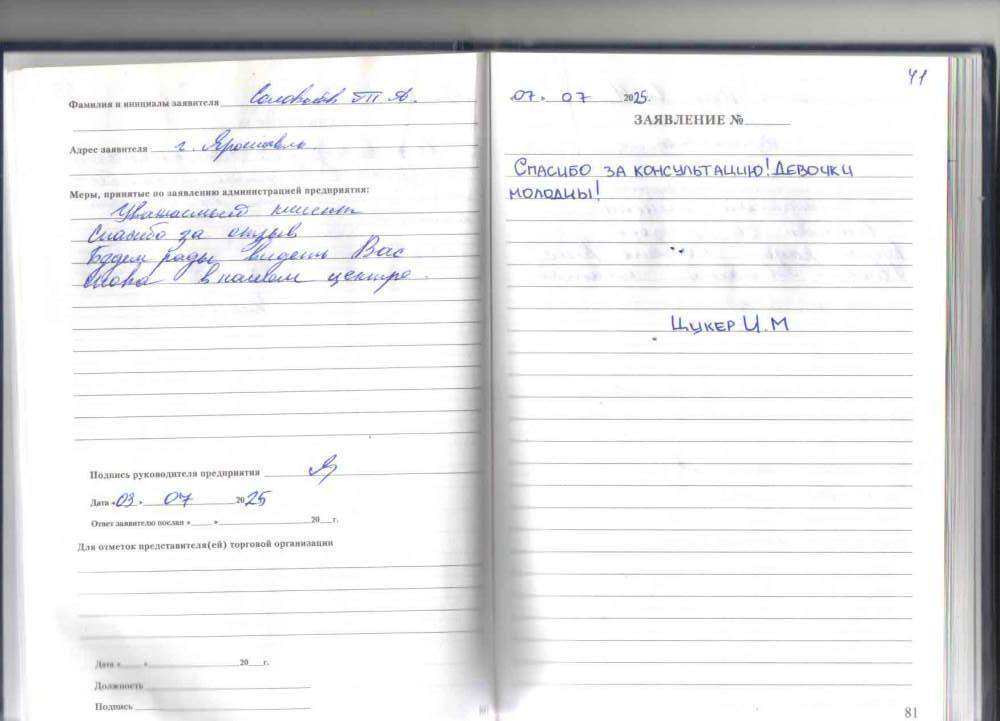 Фамилия и инициалы заявителя Соловьёв П А.
Адрес заявителя г. Ярославль.
Меры, принятые по заявлению администрацией предприятия:
Уважаемый клиент
Спасибо за отзыв
Будем рады видеть Вас
снова в нашем центре.
Подпись руководителя предприятия
Дата «03» 07 2025
Ответ заявителю послан «___» ___ 20__г.
Для отметок представителя(ей) торговой организации
Дата «___» ___ 20__г.
Должность
Подпись
41
07. 07 2025.
ЗАЯВЛЕНИЕ №
СПАСИБО ЗА КОНСУЛЬТАЦИЮ! ДЕВОЧКИ
МОЛОДЦЫ!
ЦУКЕР И.М
81